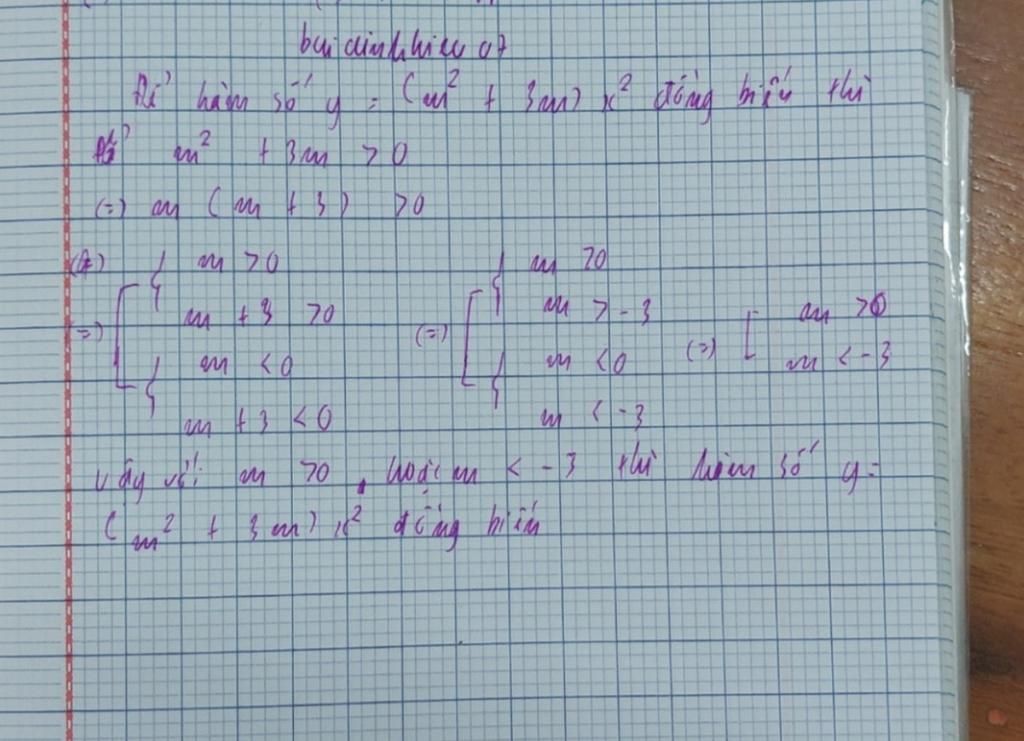 buidinhhieu 07
Để hàm số y = (m² + 3m) x² đồng biến thì
m² + 3m > 0
(=) m (m + 3) > 0
{ m > 0 { m > 0
m + 3 > 0 m > -3 m > 0
(=) [ (=) [ (=) [
{ m < 0 { m < 0 m < -3
m + 3 < 0 m < -3
Vậy với m > 0, hoặc m < -3 thì hàm số y =
(m² + 3m) x² đồng biến